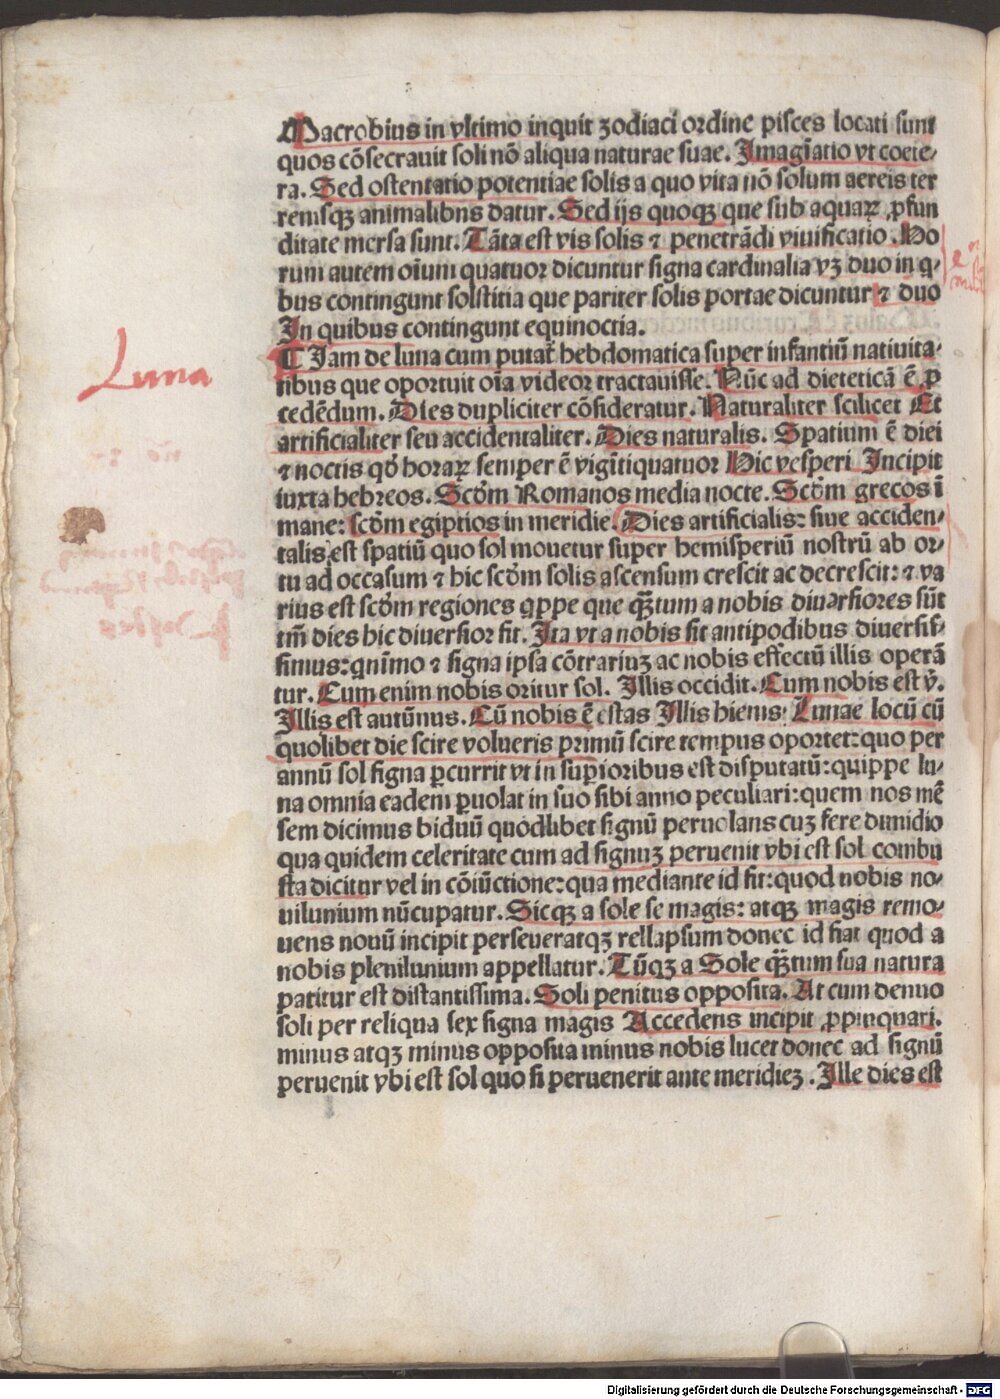 Macrobius in vltimo inquit zodiaci ordine pisces locati sunt
quos cõsecrauit soli nõ aliqua naturae suae. Imagĩatio vt coete/
ra. Sed ostentatio potentiae solis a quo vita nõ solum aereis ter
remsqꝫ animalibns datur. Sed ijs quoqꝫ que sub aquaꝝ ꝓfun
ditate mersa sunt. Tãta est vis solis ⁊ penetrãdi viuificatio. Ho
rum autem oĩum quatuor dicuntur signa cardinalia vꝫ duo in q/
bus contingunt solstitia que pariter solis portae dicuntur ⁊ duo
In quibus contingunt equinoctia.
Luna
¶ Iam de luna cum putat̃ hebdomatica super infantiũ natiuita/
tibus que oportuit oĩa videor tractauisse. Nũc ad dieteticã ẽ ꝓ
cedẽdum. Dies dupliciter cõsideratur. Naturaliter scilicet Et
artificialiter seu accidentaliter. Dies naturalis. Spatium ẽ diei
⁊ noctis qđ horaꝝ semper ẽ vigĩtiquatuor Hic vesperi Incipit
iuxta hebreos. Scđm Romanos media nocte. Scđm grecos ĩ
mane: scđm egiptios in meridie. Dies artificialis: siue acciden/
talis est spatiũ quo sol mouetur super hemisperiũ nostrũ ab or/
tu ad occasum ⁊ hic scđm solis ascensum crescit ac decrescit: ⁊ va
rius est scđm regiones qꝓpe que qꝫ̃tum a nobis diuersiores sũt
tm̃ dies hic diuersior fit. Ita vt a nobis sit antipodibus diuersis/
simus: qnĩmo ⁊ signa ipsa cõtrariuꝫ ac nobis effectũ illis operã
tur. Cum enim nobis oritur sol. Illis occidit. Cum nobis est ṽ.
Illis est autũnus. Cũ nobis ẽ estas Illis hiems: Lunae locũ cũ
quolibet die scire volueris primũ scire tempus oportet: quo per
annũ sol signa ꝑcurrit vt in suꝑioribus est disputatũ: quippe lu/
na omnia eadem ꝑuolat in suo sibi anno peculiari: quem nos mẽ
sem dicimus biduũ quodlibet signũ peruolans cuꝫ fere dimidio
qua quidem celeritate cum ad signuꝫ peruenit vbi est sol combu
sta dicitur vel in cõiũctione: qua mediante id fit: quod nobis no/
uilunium nũcupatur. Sicqꝫ a sole se magis: atqꝫ magis remo/
uens nouũ incipit perseueratqꝫ rellapsum donec id fiat quod a
nobis plenilunium appellatur. Tũqꝫ a Sole qꝫ̃tum sua natura
patitur est distantissima. Soli penitus opposita. At cum denuo
soli per reliqua sex signa magis Accedens incipit ꝓpinquari.
minus atqꝫ minus opposita minus nobis lucet donec ad signũ
peruenit vbi est sol quo si peruenerit ante meridieꝫ. Ille dies est
Digitalisierung gefördert durch die Deutsche Forschungsgemeinschaft - DFG